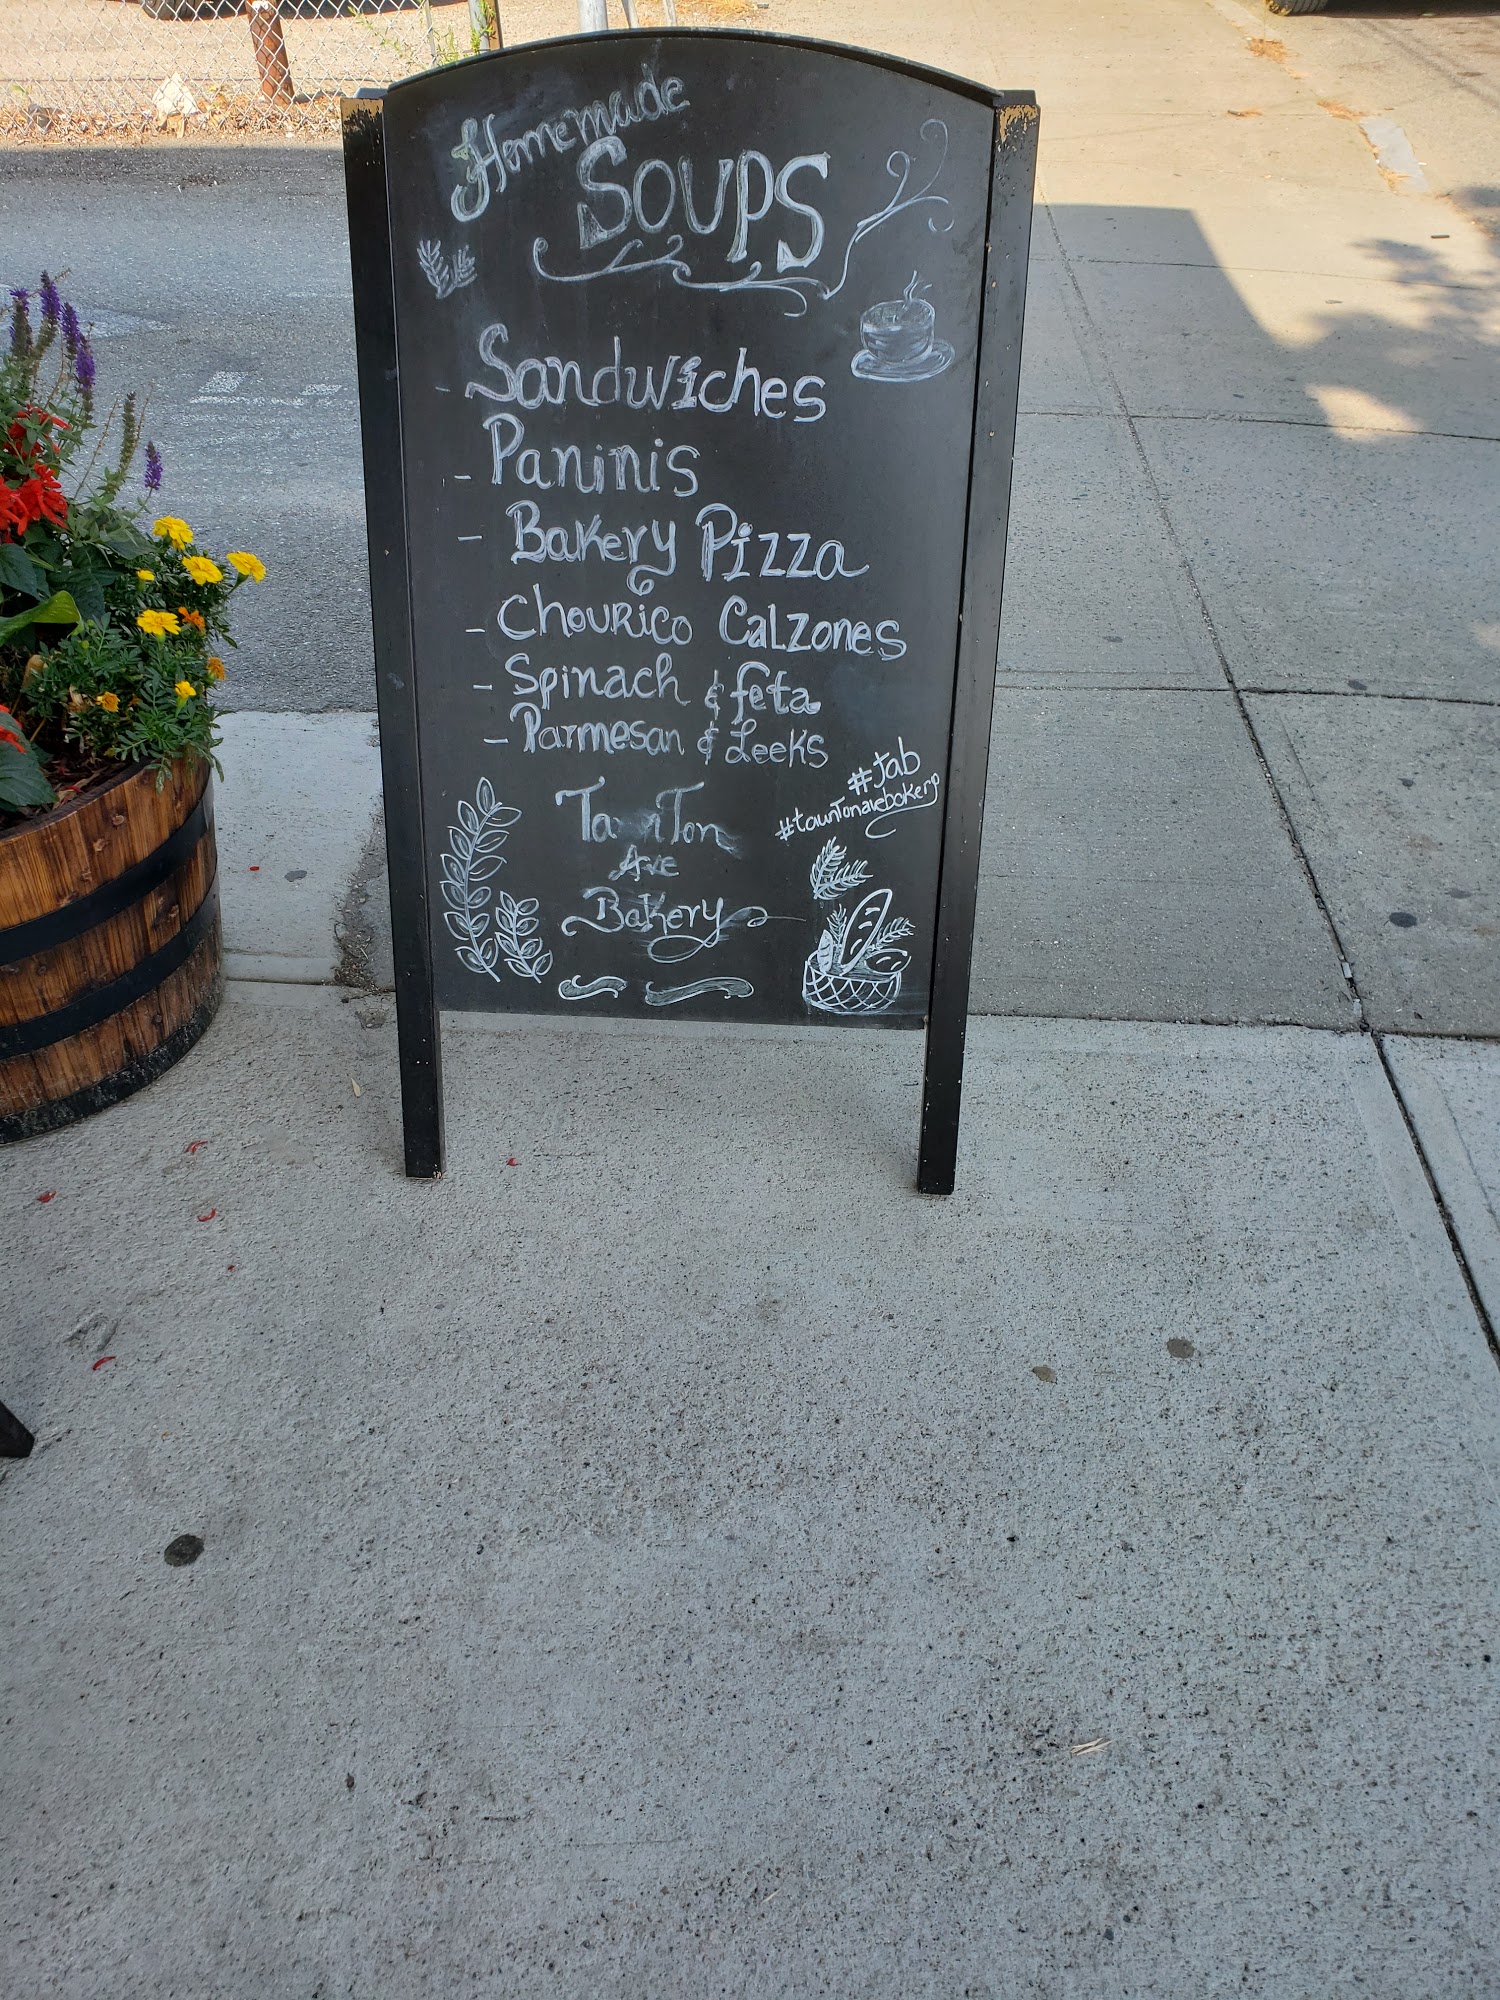 Homemade
Soups
- Sandwiches
- Paninis
- Bakery Pizza
- Chourico Calzones
- Spinach & feta
- Parmesan & Leeks
#tab
#tauntonavebakery
Taunton
Ave
Bakery